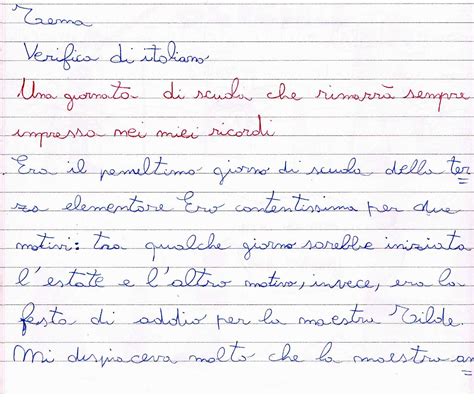 Tema
Verifica di italiano
Una giornata di scuola che rimarrà sempre
impressa nei miei ricordi
Era il penultimo giorno di scuola della ter
za elementare Ero contentissima per due
motivi: tra qualche giorno sarebbe iniziata
l'estate e l'altro motivo, invece, era la
festa di addio per la maestra Tilde.
Mi dispiaceva molto che la maestra an